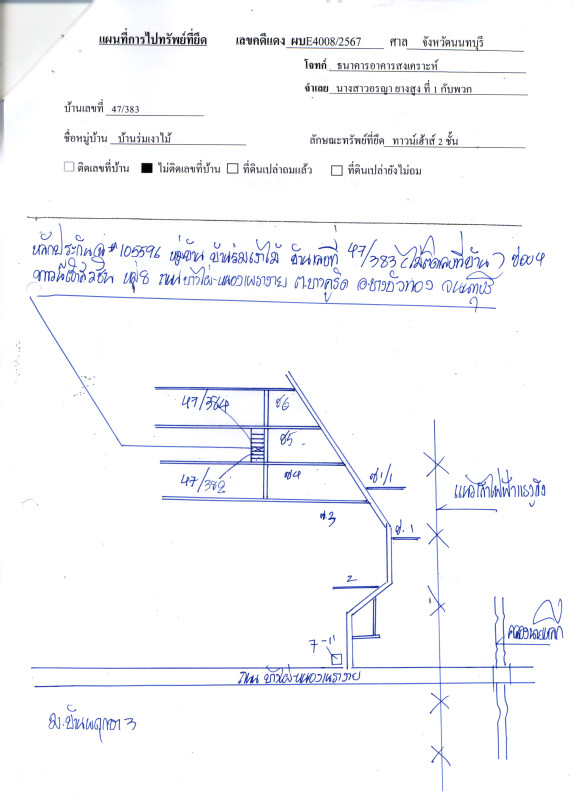 แผนที่การไปทรัพย์ที่ยึด เลขคดีแดง ผบE4008/2567 ศาล จังหวัดนนทบุรี
โจทก์ ธนาคารอาคารสงเคราะห์
จำเลย นางสาวอรญา ยางสูง ที่ 1 กับพวก
บ้านเลขที่ 47/383
ชื่อหมู่บ้าน บ้านร่มเงาไม้ ลักษณะทรัพย์ที่ยึด ทาวน์เฮ้าส์ 2 ชั้น
ติดเลขที่บ้าน ไม่ติดเลขที่บ้าน ที่ดินเปล่าถมแล้ว ที่ดินเปล่ายังไม่ถม
หลักประกัน #105596 หมู่บ้าน บ้านร่มเงาไม้ บ้านเลขที่ 47/383 (ไม่ติดเลขที่บ้าน) ซอย 4
หมู่ 8 ถนน บ้านไผ่-หนองเพรางาย ต.บางคูรัด อ.บางบัวทอง จ.นนทบุรี
47/384 ซ6
ซ5
47/382 ซ4
ซ1/1
ซ3
แนวเสาไฟฟ้าแรงสูง
ซ.1
2
7-11
ถนน บ้านไผ่-หนองเพรางาย
ม.บ้านพฤกษา 3